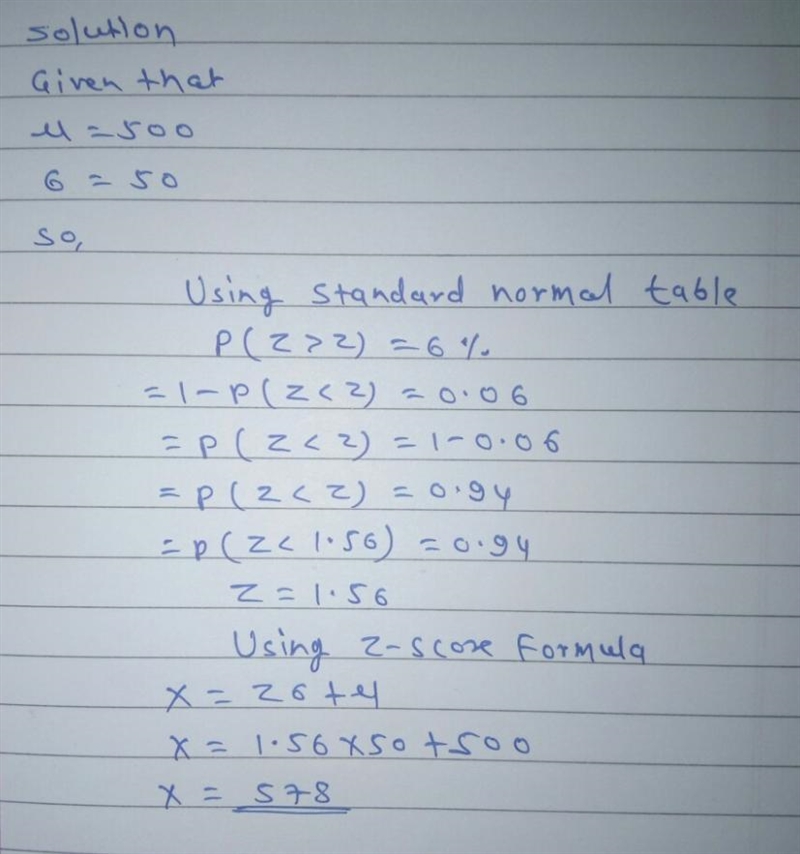 Solution
Given that
μ = 500
σ = 50
So,
Using standard normal table
P(Z > z) = 6 %.
= 1 - P(Z < z) = 0.06
= P(Z < z) = 1 - 0.06
= P(Z < z) = 0.94
= P(Z < 1.56) = 0.94
z = 1.56
Using z-score Formula
X = zσ + μ
X = 1.56 × 50 + 500
X = 578